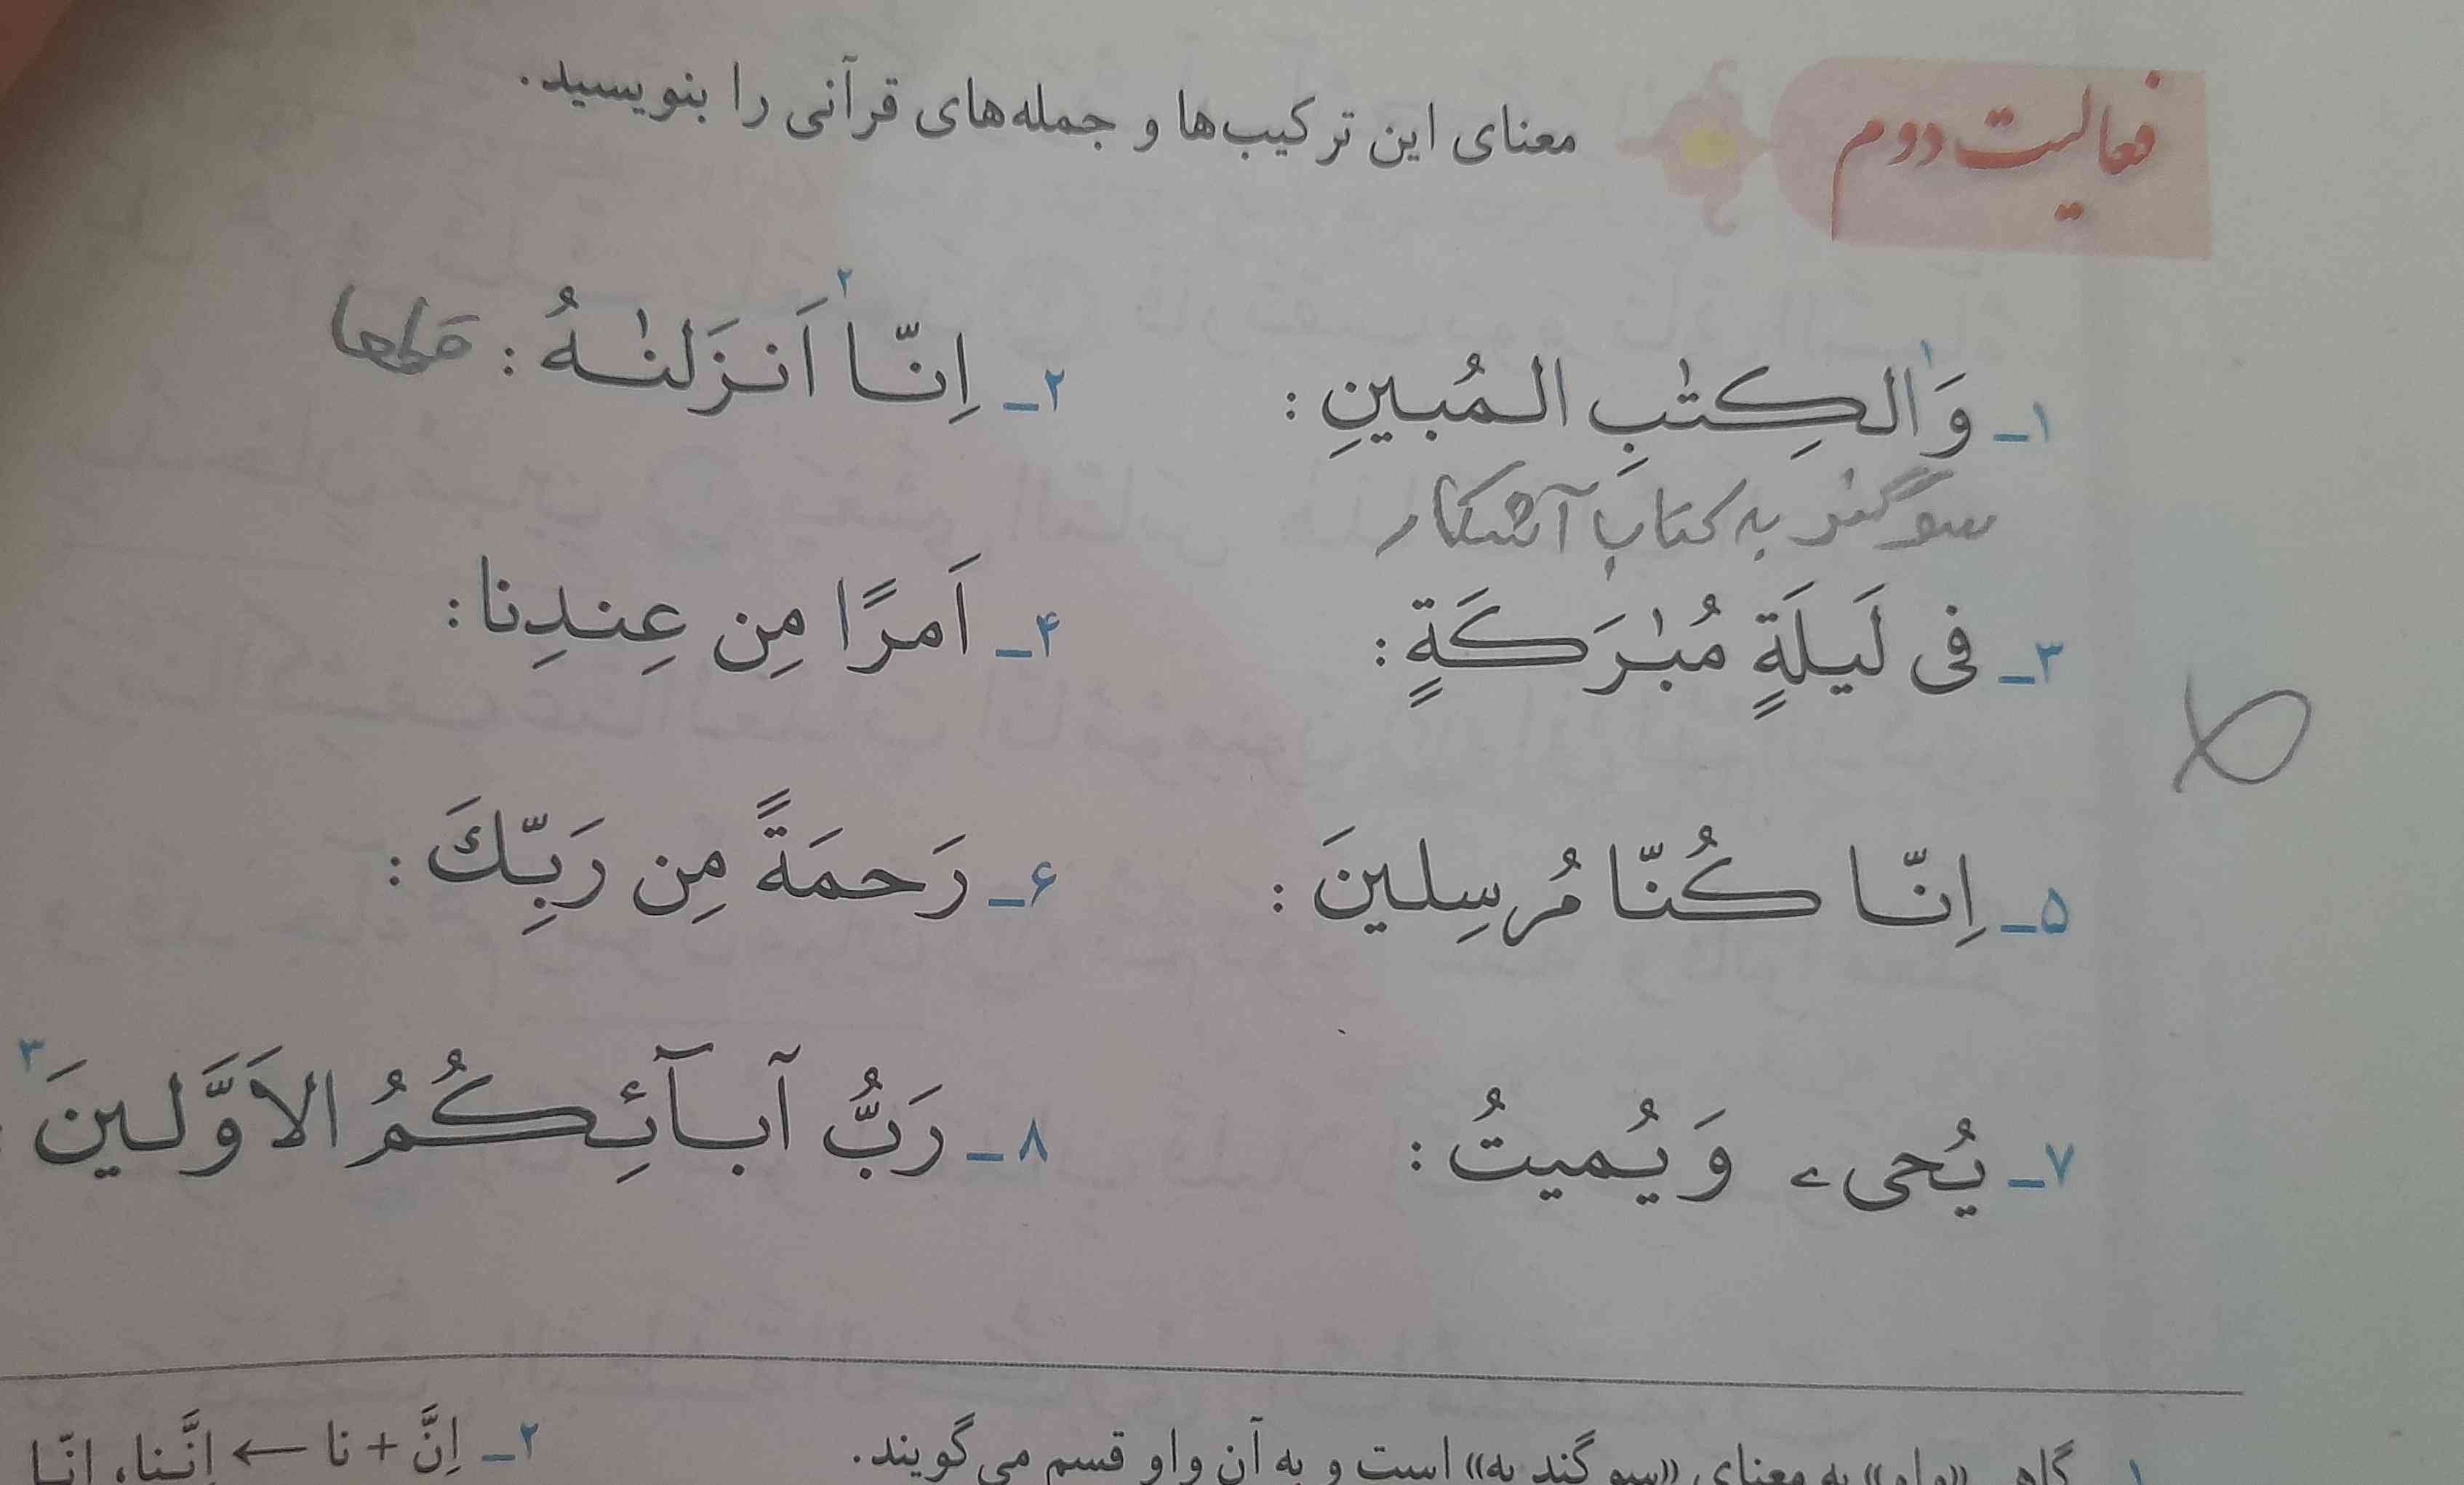 فعالیت دوم معنای این ترکیب‌ها و جمله‌های قرآنی را بنویسید.
۱ـ وَالکِتٰبِ المُبینِ : ۲ـ اِنّا اَنزَلنٰهُ :
سوگند به کتاب آشکار
۳ـ فی لَیلَةٍ مُبٰرَکَةٍ : ۴ـ اَمرًا مِن عِندِنا :
۵ـ اِنّا کُنّا مُرسِلینَ : ۶ـ رَحمَةً مِن رَبِّكَ :
۷ـ یُحیء وَ یُمیتُ : ۸ـ رَبُّ آبآئِکُمُ الاَوَّلینَ۳ :
۱ـ گاهی «واو» به معنای «سوگند به» است و به آن واو قسم می‌گویند. ۲ـ اِنَّ + نا ← اِنَّنا، اِنّا